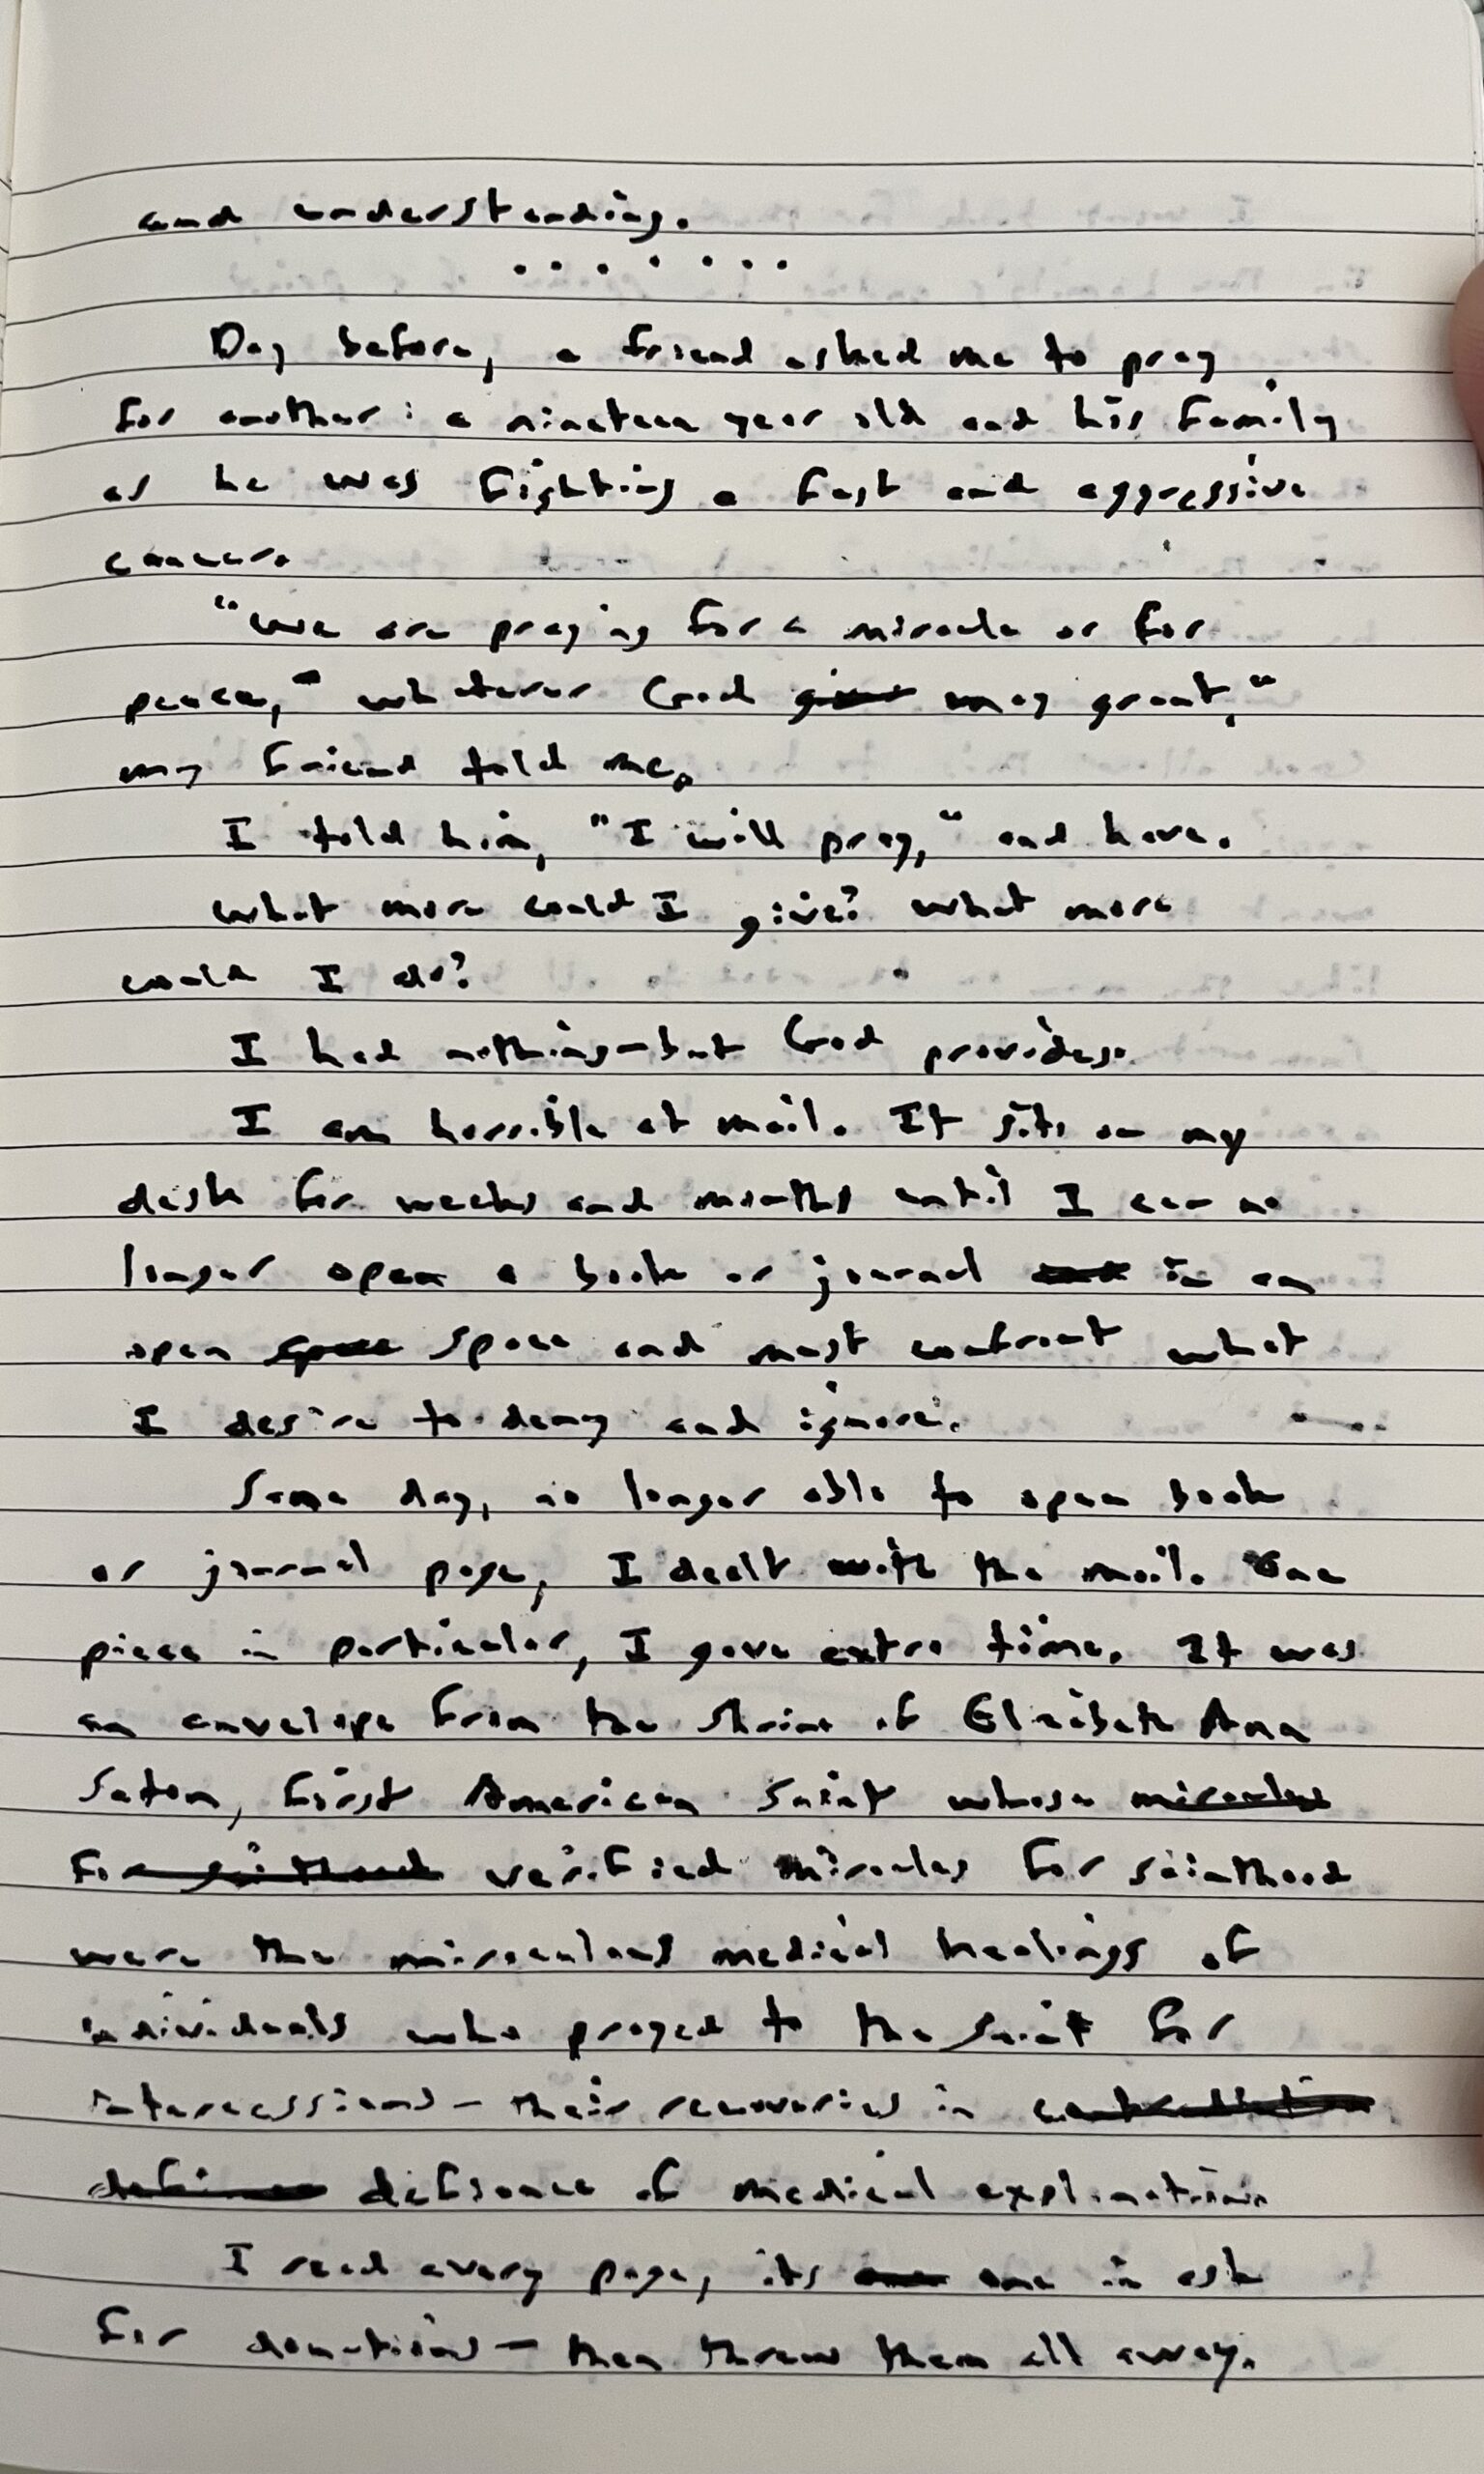 and understanding.
. . . . . . .
Day before, a friend asked me to pray
for another: a nineteen year old and his family
as he was fighting a fast and aggressive
cancer.
"We are praying for a miracle or for
peace," whatever God may grant,"
my friend told me.
I told him, "I will pray," and have.
What more could I give? What more
could I do?
I had nothing—but God provides.
I am horrible at mail. It sits on my
desk for weeks and months until I can no
longer open a book or journal in an
open space and must confront what
I desire to deny and ignore.
Same day, no longer able to open book
or journal page, I dealt with the mail. One
piece in particular, I gave extra time. It was
an envelope from the Shrine of Elizabeth Ann
Seton, first American Saint whose miracles
for verified miracles for sainthood
were the miraculous medical healings of
individuals who prayed to the Saint for
intercessions — their recoveries in
defiance of medical explanation
I read every page, its one in ask
for donations — then threw them all away.